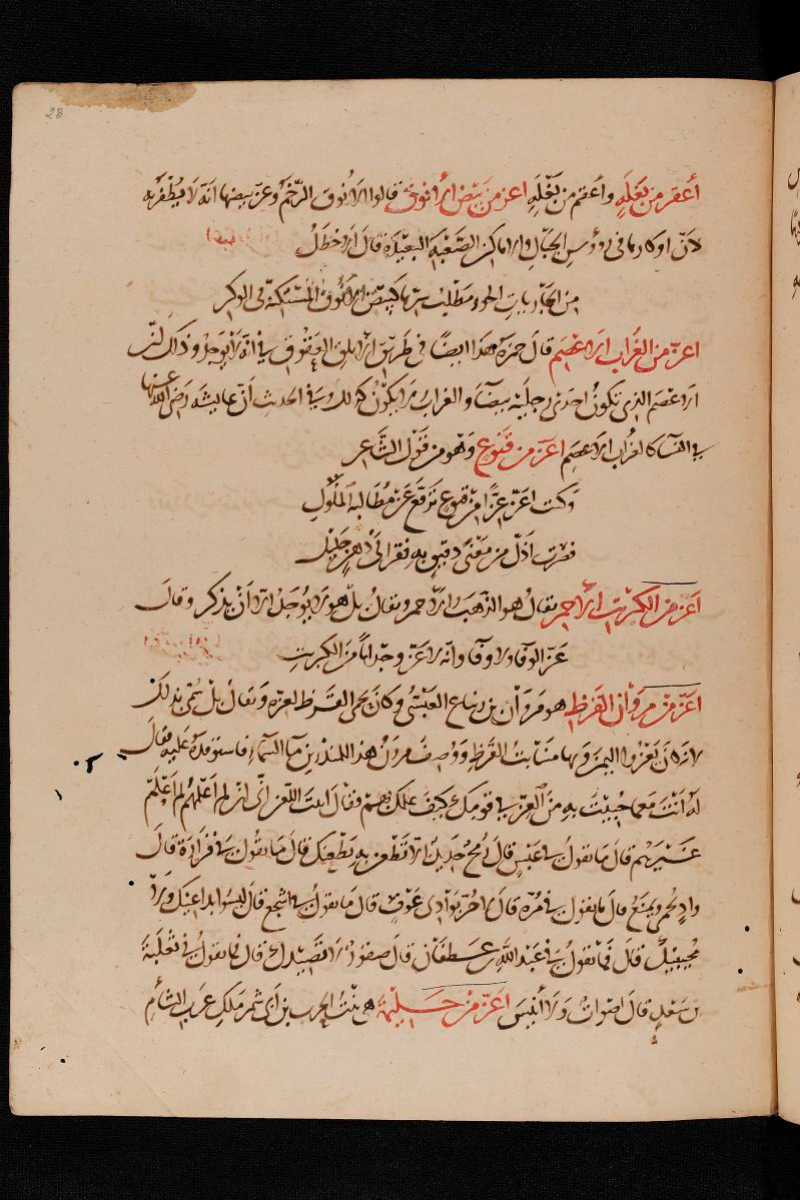 28
أعقر من بغلة وأعقم من بغلة أعز من بيض الأنوق قالوا الأنوق الرخم وعز بيضها أنه لا يظفر به
لأن أوكارها في رؤس الجبال والأماكن الصعبة البعيدة قال الأخطل
من الجاريات الحور مطلب سرها كبيض الأنوق المستكنة في الوكر
أعز من الغراب الأعصم قال حمزة هذا أيضا في طريق الأبلق العقوق في أنه لا يوجد وذلك لأن
الأعصم الذي تكون احدى رجليه بيضاء والغراب لا يكون كذلك وفي الحديث أن عايشة رضي الله عنها
في النساء كالغراب الأعصم أعز من قنوع وهو من قول الشاعر
وكنت أعز عزا من قنوع ترفع عن مطالبة الملول
فصرت أذل من معنى دقيق به فقر الى ذهن جليل
أعز من الكبريت الأحمر يقال هو الذهب الأحمر ويقال بل هو لا يوجد الا أن يذكر وقال
عز الوفا ولا وفا وانه لأعز وجدانا من الكبريت
أعز من مروان القرظ هو مروان بن زنباع العبسي وكان يحمي القرظ لعزه ويقال بل سمي بذلك
لأنه كان يغزوا اليمن وبها منابت القرظ ووصف مروان هذا للمنذر بن ماء السماء فاستوفده عليه فقال
له أنت مع ما حبيت به من العز في قومك كيف علمك بهم فقال أبيت اللعن اني ان لم أعلمهم لم أعلم
غيرهم قال ما تقول في عبس قال رمح حديد الا تطعن به يطعنك قال ما تقول في فزارة قال
واد يحمي ويمنع قال ما تقول في مرة قال لا حر بوادي عوف قال ما تقول في أشجع قال ليسوا بداعيك ولا
بمجيبيك قال فما تقول في عبد الله بن غطفان قال صقور لا تصيدك قال فما تقول في ثعلبة
بن سعد قال أصوات ولا أنيس أعز من حليمة هي بنت الحرث بن أبي شمر ملك عرب الشام